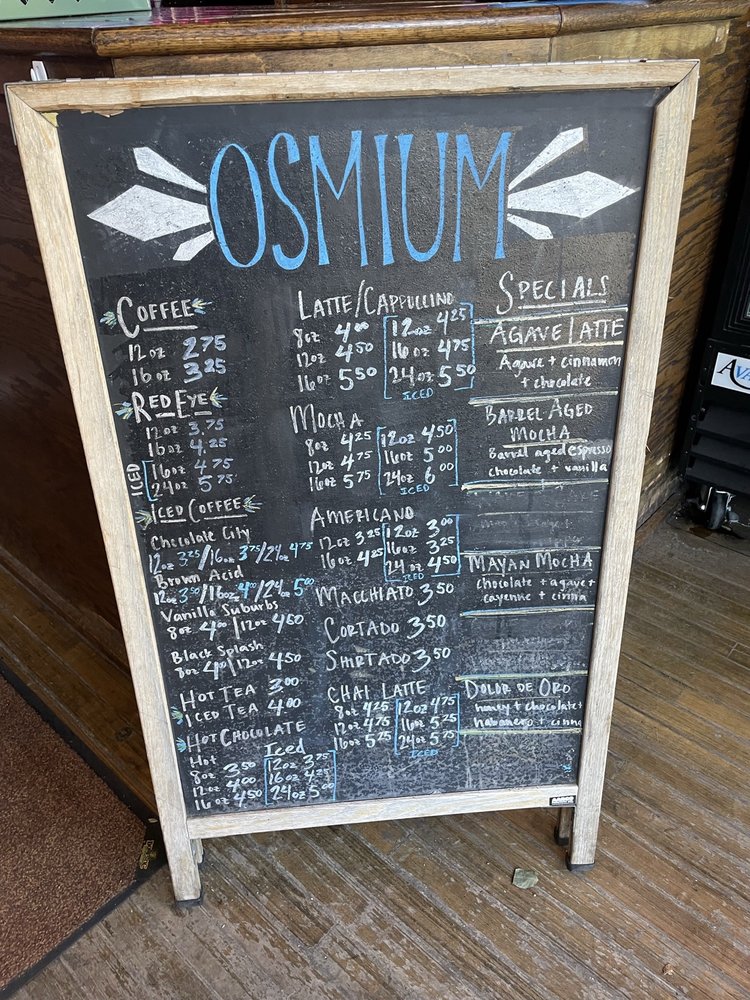 OSMIUM
COFFEE
12oz 2.75
16oz 3.25
RED EYE
12oz 3.75
16oz 4.25
ICED
16oz 4.75
24oz 5.75
ICED COFFEE
Chocolate City
12oz 3.25/16oz 3.75/24oz 4.75
Brown Acid
12oz 3.50/16oz 4.00/24oz 5.00
Vanilla Suburbs
8oz 4.00/12oz 4.50
Black Splash
8oz 4.00/12oz 4.50
HOT TEA 3.00
ICED TEA 4.00
HOT CHOCOLATE
Hot
8oz 3.50
12oz 4.00
16oz 4.50
Iced
12oz 3.75
16oz 4.25
24oz 5.00
LATTE/CAPPUCCINO
8oz 4.00
12oz 4.50
16oz 5.50
12oz 4.25
16oz 4.75
24oz 5.50
ICED
MOCHA
8oz 4.25
12oz 4.75
16oz 5.25
12oz 4.50
16oz 5.00
24oz 6.00
ICED
AMERICANO
12oz 3.25
16oz 4.25
12oz 3.00
16oz 3.25
24oz 4.50
ICED
MACCHIATO 3.50
CORTADO 3.50
SHIRTADO 3.50
CHAI LATTE
8oz 4.25
12oz 4.75
16oz 5.25
12oz 4.75
16oz 5.25
24oz 5.75
ICED
SPECIALS
AGAVE LATTE
Agave + cinnamon
+ chocolate
BARREL AGED
MOCHA
Barrel aged espresso
chocolate + vanilla
MAYAN MOCHA
chocolate + agave +
cayenne + cinna
DOLOR DE ORO
honey + chocolate +
habanero + cinna